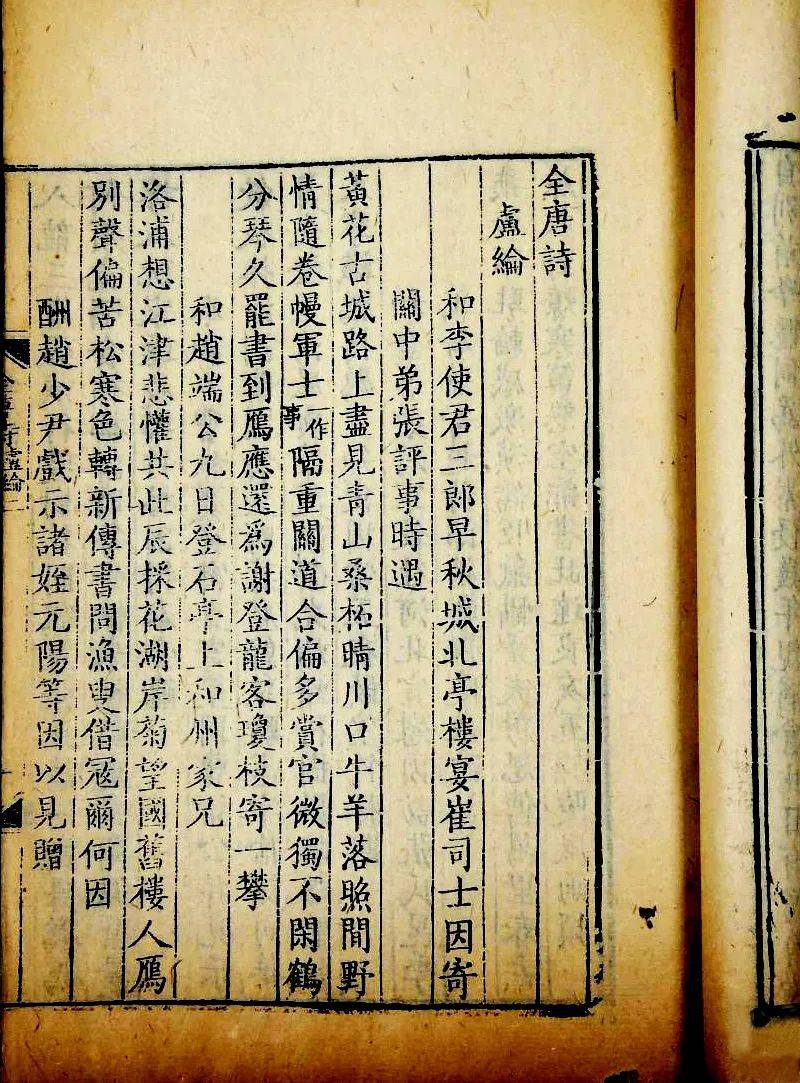 全唐詩
盧綸
和李使君三郎早秋城北亭樓宴崔司士因寄
關中弟張評事時遇
黃花古城路上盡見青山桑柘晴川口牛羊落照間野
情隨卷幔軍士一作事隔重關道合偏多賞官微獨不閑鶴
分琴久罷書到鴈應還爲謝登龍客瓊枝寄一攀
和趙端公九日登石亭上和州家兄
洛浦想江津悲懽共此辰採花湖岸菊望國舊樓人鴈
別聲偏苦松寒色轉新傳書問漁叟借寇爾何因
酬趙少尹戲示諸姪元陽等因以見贈